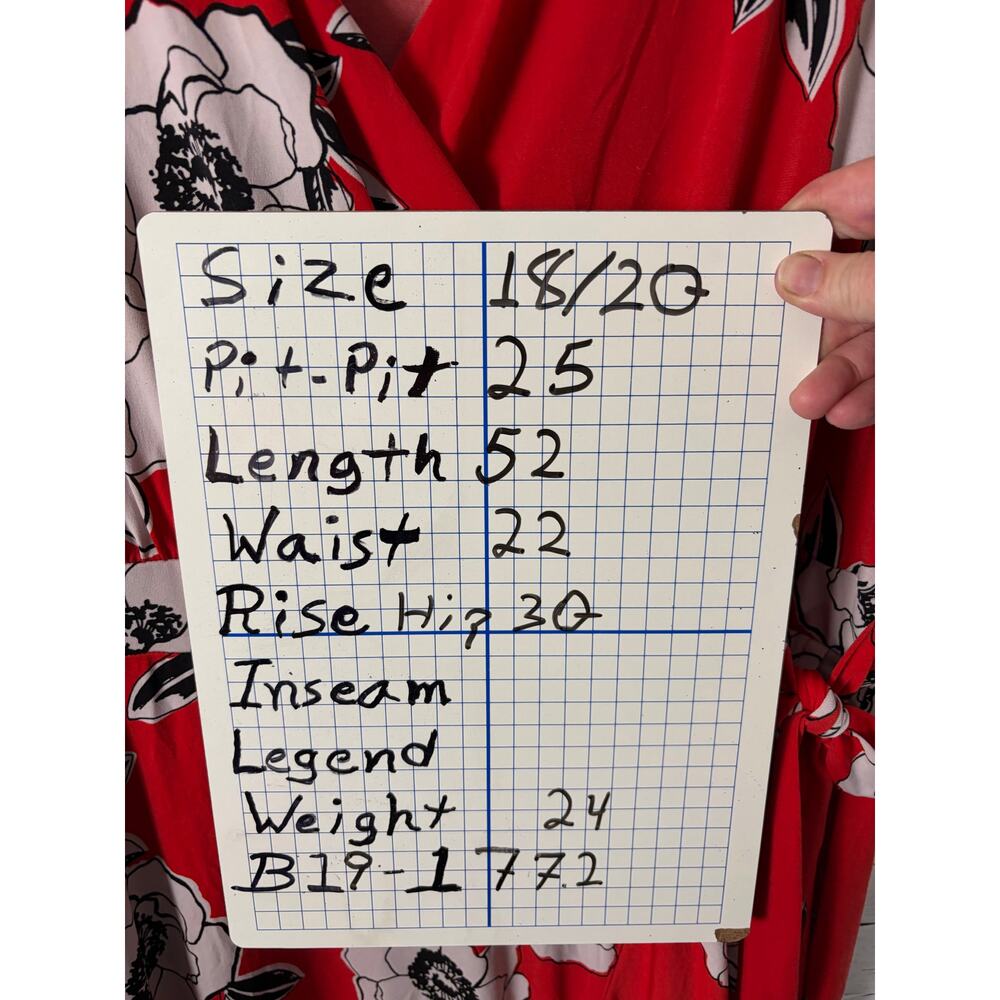 Size 18/20
Pit-Pit 25
Length 52
Waist 22
Rise Hip 30
Inseam
Legend
Weight 24
B19-1772